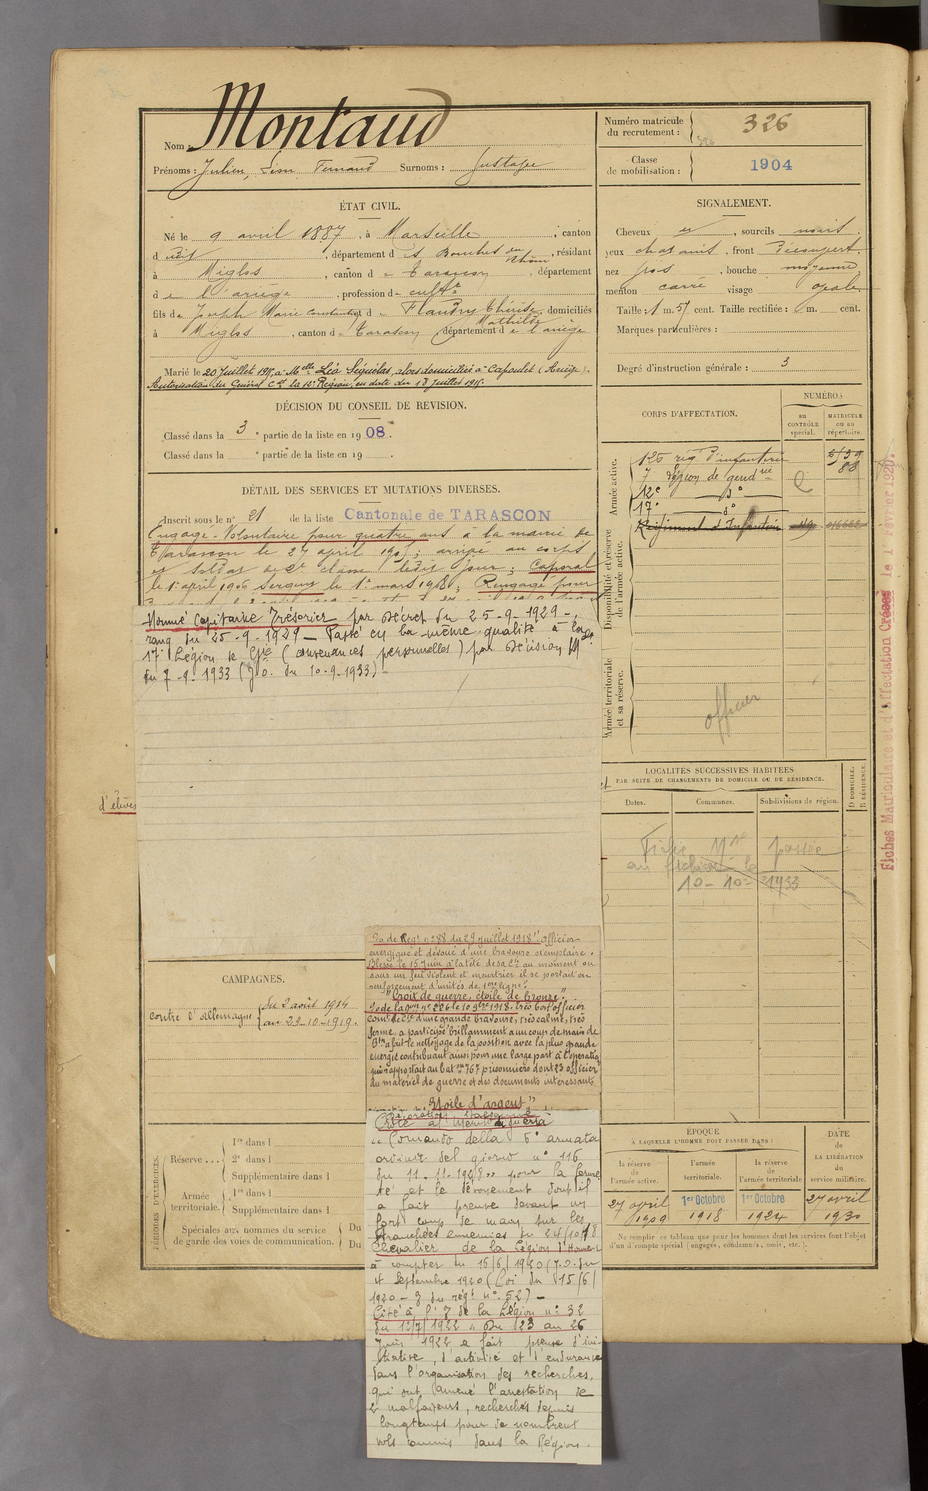 Nom : Montaud
Prénoms : Julien, Léon Fernand Surnoms : Gustave
Numéro matricule
du recrutement : 326
Classe
de mobilisation : 1904
ÉTAT CIVIL.
Né le 9 avril 1887, à Marseille, canton
d udit, département d es Bouches du Rhône, résidant
à Miglos, canton d e Tarascon, département
d e l'ariège, profession d
fils de Joseph Marie Constantin et d e Flaudry Thérèse Mathilde, domiciliés
à Miglos, canton d e Tarascon département d e l'ariège
Marié le 20 Juillet 1915, à Melle Léa Séguélas, alors domiciliée à Capoulet (Ariège).
Autorisation du Général Ct la 12e Région, en date du 18 Juillet 1915.
SIGNALEMENT.
Cheveux et, sourcils noirs
yeux chatains, front Découvert
nez gros, bouche moyenne
menton carré visage ovale
Taille : 1 m. 57 cent. Taille rectifiée : m. cent.
Marques particulières :
Degré d'instruction générale : 3
DÉCISION DU CONSEIL DE REVISION.
Classé dans la 3e partie de la liste en 1908.
Classé dans la e partie de la liste en 19
DÉTAIL DES SERVICES ET MUTATIONS DIVERSES.
Inscrit sous le n° 21 de la liste Cantonale de TARASCON
Engagé Volontaire pour quatre ans à la mairie de
Tarascon le 27 avril 1905; arrivé au corps
et soldat de 2e classe ledit jour; Caporal
le 1er avril 1906 Sergent le 1er mars 1908; Rengagé pour
Nommé Capitaine Trésorier par décret du 25-9-1929 -,
rang du 25-9-1929 - Passé en la même qualité à la
17e Légion de Gie (convenances personnelles) par décision
du 7-9-1933 (J.O. du 10-9-1933)
d'élève
CORPS D'AFFECTATION.
NUMÉROS
au
CONTRÔLE
spécial.
MATRICULE
ou au
répertoire.
Armée active.
126 rég d'infanterie 5139
7 Légion de gendrie 88
12e do
17e do
Régiment d'Infanterie
Disponibilité et réserve
de l'armée active.
Armée territoriale
et sa réserve.
officier
Fiches Matriculaire et d'affectation Créées le 1er Février 1920.
LOCALITÉS SUCCESSIVES HABITÉES
PAR SUITE DE CHANGEMENTS DE DOMICILE OU DE RÉSIDENCE.
Dates. Communes. Subdivisions de région. D. DOMICILE. R. RÉSIDENCE.
Fiche Mle passée
au fichier le
10-10-1933
CAMPAGNES.
Contre l'Allemagne du 2 août 1914
au 23-10-1919.
O de Regt n° 88 du 29 juillet 1918 "Officier
énergique et dévoué d'une bravoure exemplaire.
Blessé le 15 Juin à la tête de sa Cie au moment où
sous un feu violent et meurtrier il se portait en
renforcement d'unités de 1ere ligne."
"Croix de guerre, étoile de bronze"
Très bon officier
d'une grande bravoure, très calme, très
ferme, a participé brillamment à un coup de main de
Btn a fait le nettoyage de la position avec la plus grande
énergie contribuant ainsi pour une large part à l'opération
qui rapportait au bat 767 prisonniers dont 23 officiers
du matériel de guerre et des documents intéressants
"Étoile d'argent"
"Comando della 6e armata
ordine del giorno n° 116
du 11.11.1918" pour la ferme
té et le dévouement dont il
a fait preuve devant un
fort coup de main sur les
tranchées ennemies du 24/10/18
Chevalier de la Légion d'Honneur
à compter du 16/6/1920 (J.O. du
4 Septembre 1920 (Loi du 15/6/
1920 - J du régt n° 52) -
Cité à l'J de la Légion n° 32
du 12/7/1922 "Du 23 au 26
Juin 1922 a fait preuve d'ini-
tiative, d'activité et d'endurance
dans l'organisation des recherches,
qui ont amené l'arrestation de
2 malfaiteurs, recherchés depuis
longtemps pour de nombreux
vols commis dans la Région.
PÉRIODES D'EXERCICES.
Réserve ... 1re dans l
2e dans l
Supplémentaire dans l
Armée
territoriale. 1re dans l
Supplémentaire dans l
Spéciales aux hommes du service
de garde des voies de communication. Du
Du
ÉPOQUE
À LAQUELLE L'HOMME DOIT PASSER DANS :
la réserve
de l'armée active.
l'armée
territoriale.
la réserve
de l'armée territoriale
DATE
de
LA LIBÉRATION
du
service militaire.
27 avril 1909
1er Octobre 1918
1er Octobre 1924
27 avril 1930
Ne remplir ce tableau que pour les hommes dont les services font l'objet
d'un compte spécial (engagés, condamnés, omis, etc.).